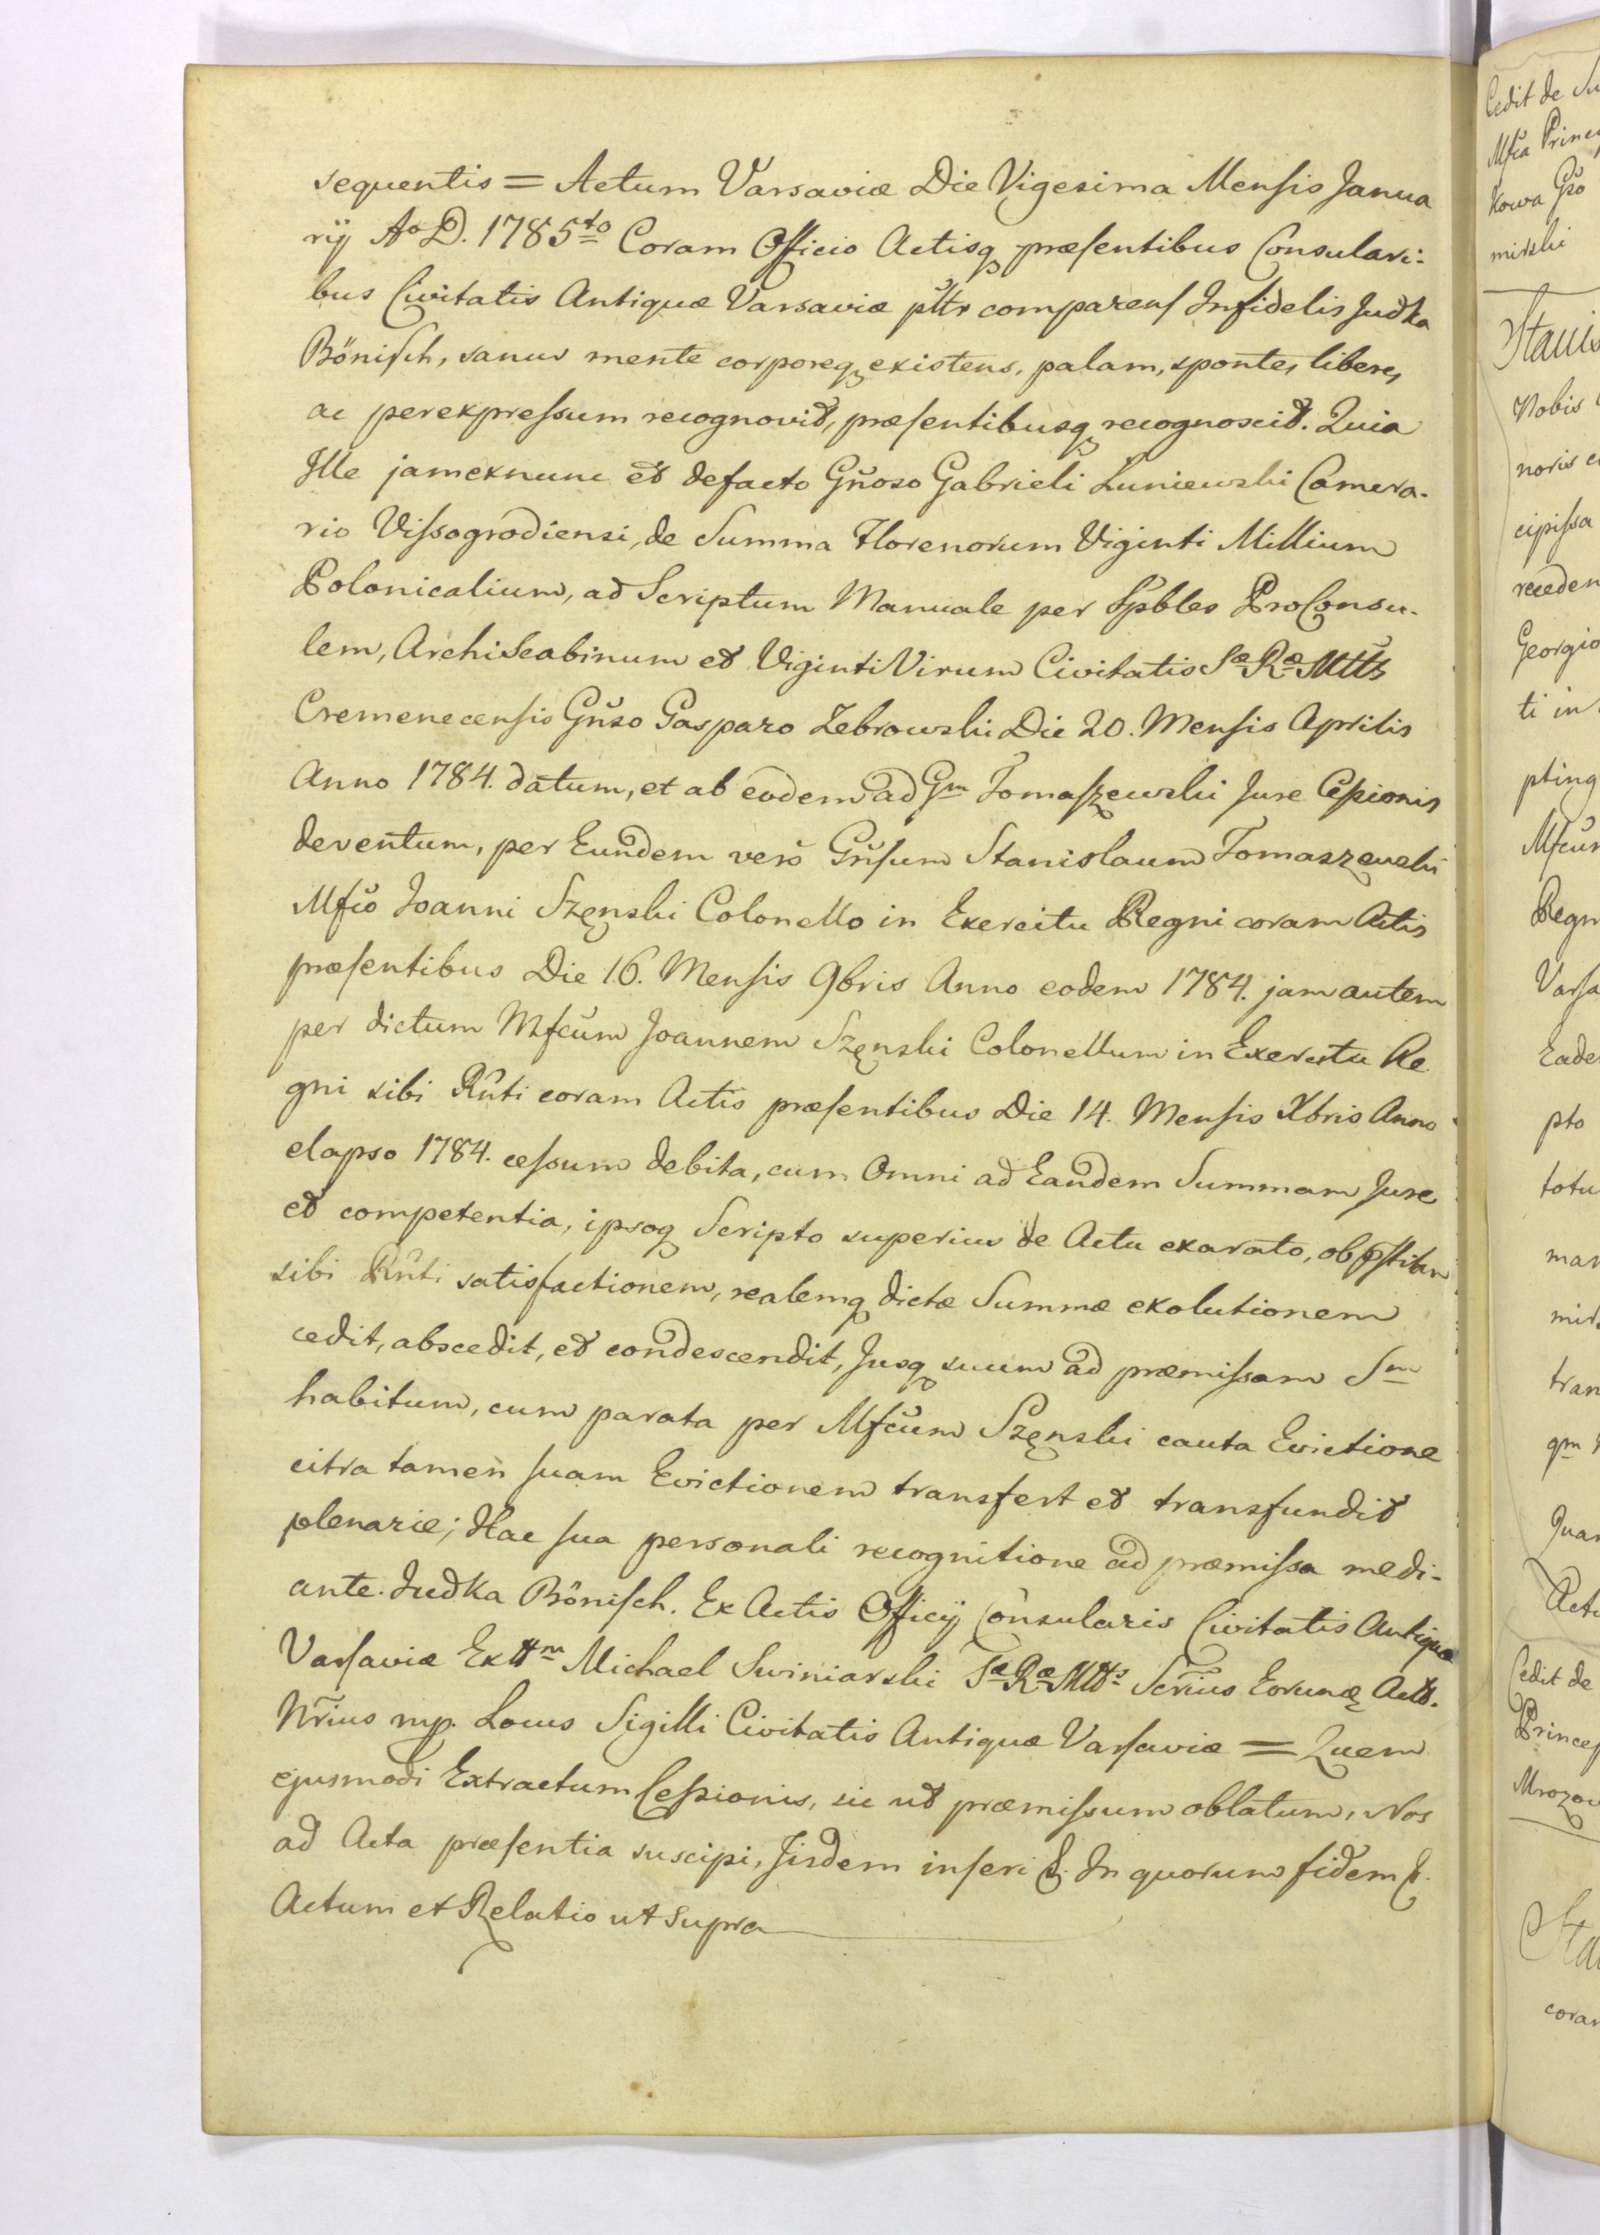 sequentis = Actum Varsaviæ Die Vigesima Mensis Janua
rij Ao D. 1785to Coram Officio Actisq præsentibus Consulari-
bus Civitatis Antiquæ Varsaviæ pltr comparens Infidelis Judka
Bönisch, sanus mente corporeq existens, palam, sponte, libere,
ac perexpressum recognovit, præsentibusq recognoscit. Quia
Ille jamexnunc et defacto Gnoso Gabrieli Łuniewski Camera-
rio Vissogrodiensi, de Summa Florenorum Viginti Millium
Polonicalium, ad Scriptum Manuale per Spbles ProConsu-
lem, ArchiScabinum et VigintiVirum Civitatis Sæ Ræ Mtts
Cremenecensis Gnso Gasparo Zebrowski Die 20. Mensis Aprilis
Anno 1784. datum, et ab eodem ad Gm Tomaszewski Jure Cessionis
deventum, per Eundem vero Gnsum Stanislaum Tomaszewski
Mfco Joanni Szęnski Colonello in Exercitu Regni coram Actis
præsentibus Die 16. Mensis 9bris Anno eodem 1784. jam autem
per dictum Mfcum Joannem Szęnski Colonellum in Exercitu Re
gni sibi Rnti coram Actis præsentibus Die 14. Mensis Xbris Anno
elapso 1784. cessum debita, cum Omni ad Eandem Summam Jure
et competentia, ipsoq Scripto superius de Actu exarato, ob
sibi Rnti satisfactionem, realemq dictæ Summæ exolutionem
cedit, abscedit, et condescendit, Jusq suum ad præmissam Sm
habitum, cum parata per Mfcum Szęnski cauta Evictione
citra tamen suam Evictionem transfert et transfundit
plenarie; Hac sua personali recognitione ad præmissa medi-
ante. Judka Bönisch. Ex Actis Officij Consularis Civitatis Antiquæ
Varsaviæ Extm Michael Swiniarski Sæ Ræ Mtts Scrius Eorumq Actt.
Nrius mp. Locus Sigilli Civitatis Antiquæ Varsaviæ = Quem
ejusmodi Extractum Cessionis, sic ut præmissum oblatum, Nos
ad Acta præsentia suscipi, Jisdem inseri &. In quorum fidem &.
Actum et Relatio ut Supra
Cedit de
Mfca
kowa Gso
mirski
Nobis
noris
cipissa
Georgio
ti in
pting
pto
totu
tran
qm
Cedit de
Princep